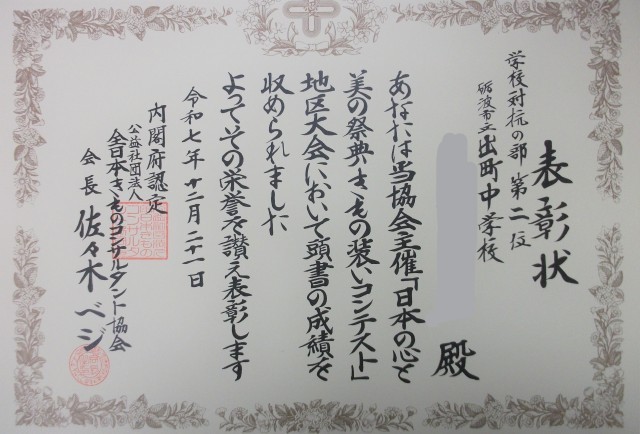 表彰状
学校対抗の部 第二位
砺波市立出町中学校
殿
あなたは当協会主催「日本の心と
美の祭典きもの装いコンテスト」
地区大会において頭書の成績を
収められました
よってその栄誉を讃え表彰します
令和七年十二月二十一日
内閣府認定
公益社団法人
全日本きものコンサルタント協会
会長 佐々木ベジ